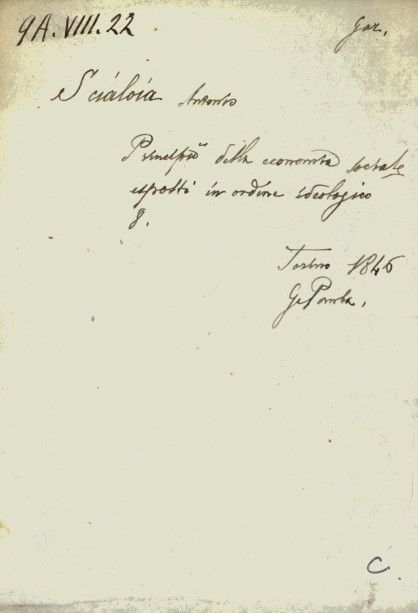 9A.VIII.22
Gar.
Scialoia Antonio
Principii della economia sociale
esposti in ordine ideologico
8.
Torino 1846
G. Pomba,
C